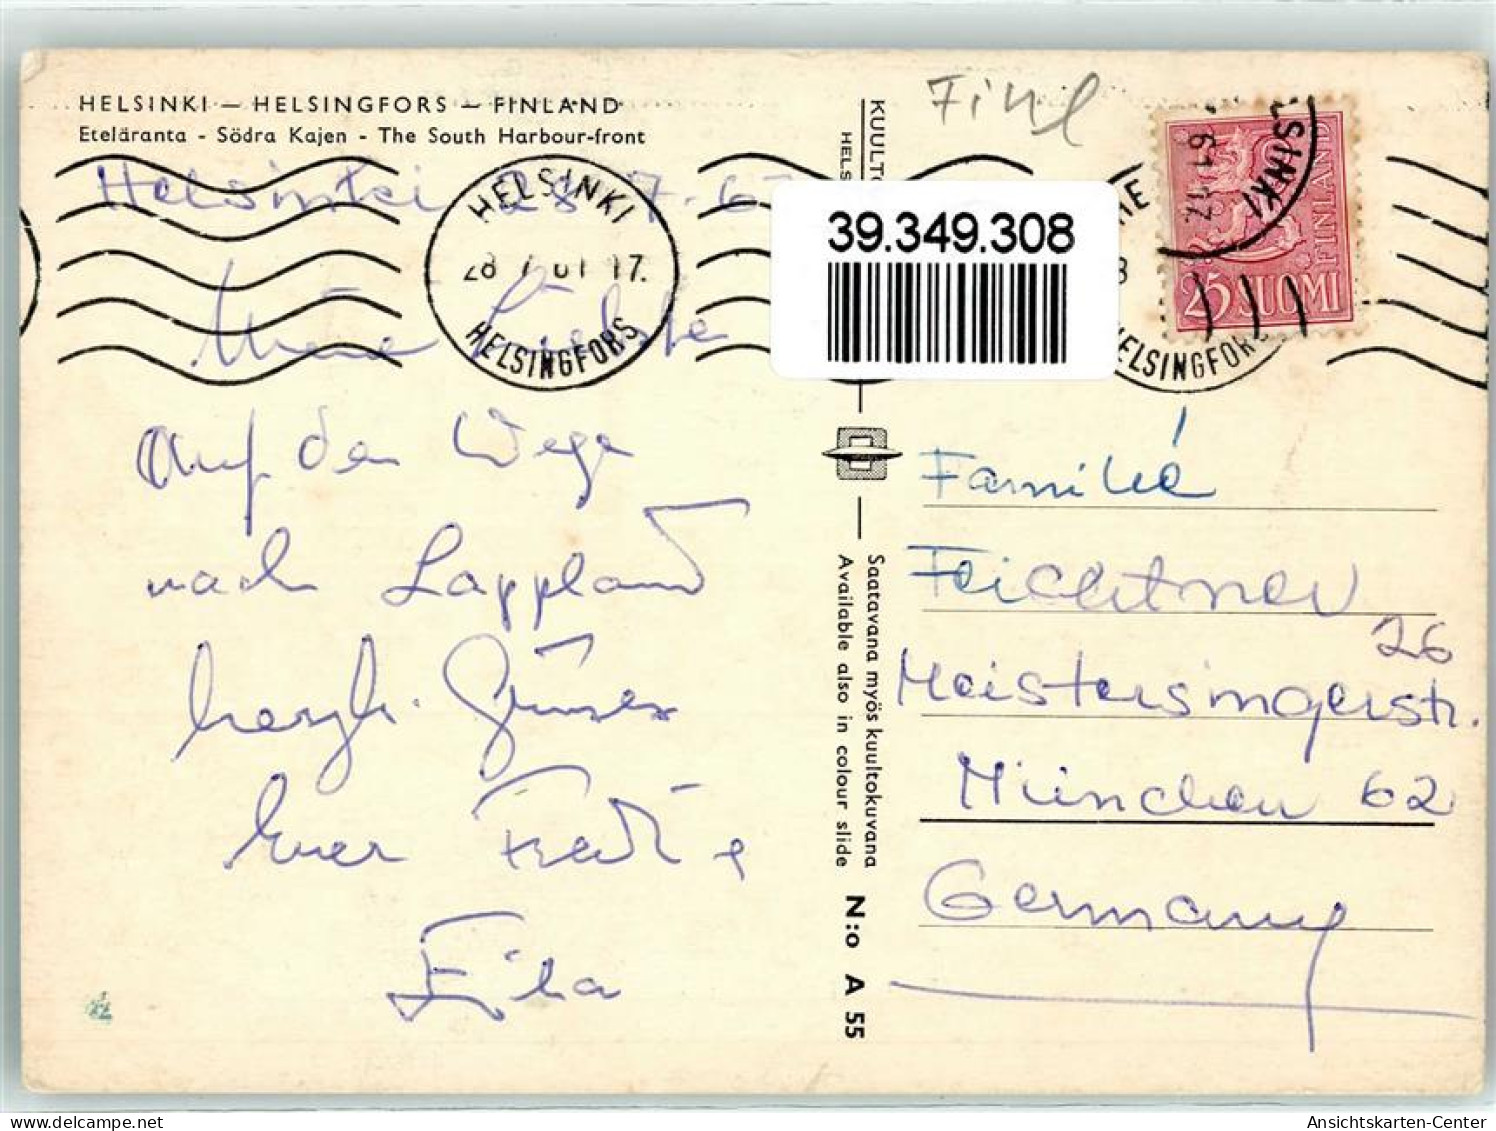 HELSINKI — HELSINGFORS — FINLAND
Eteläranta - Södra Kajen - The South Harbour-front
Helsinki 28 7. 6
Meine Liebe
Auf den Wege
nach Lappland
herzl. Grüsse
Euer Fredi e
Eila
HELSINKI
28 7 61 17.
HELSINGFORS
Finl
KUULTO
HELS
39.349.308
SINKI
61 17
FINLAND
25 SUOMI
HELSINGFORS
Saatavana myös kuultokuvana
Available also in colour slide
N:o A 55
Familie
Feichtner
26
Meistersingerstr.
München 62
Germany
oldthing.de
Ansichtskarten-Center